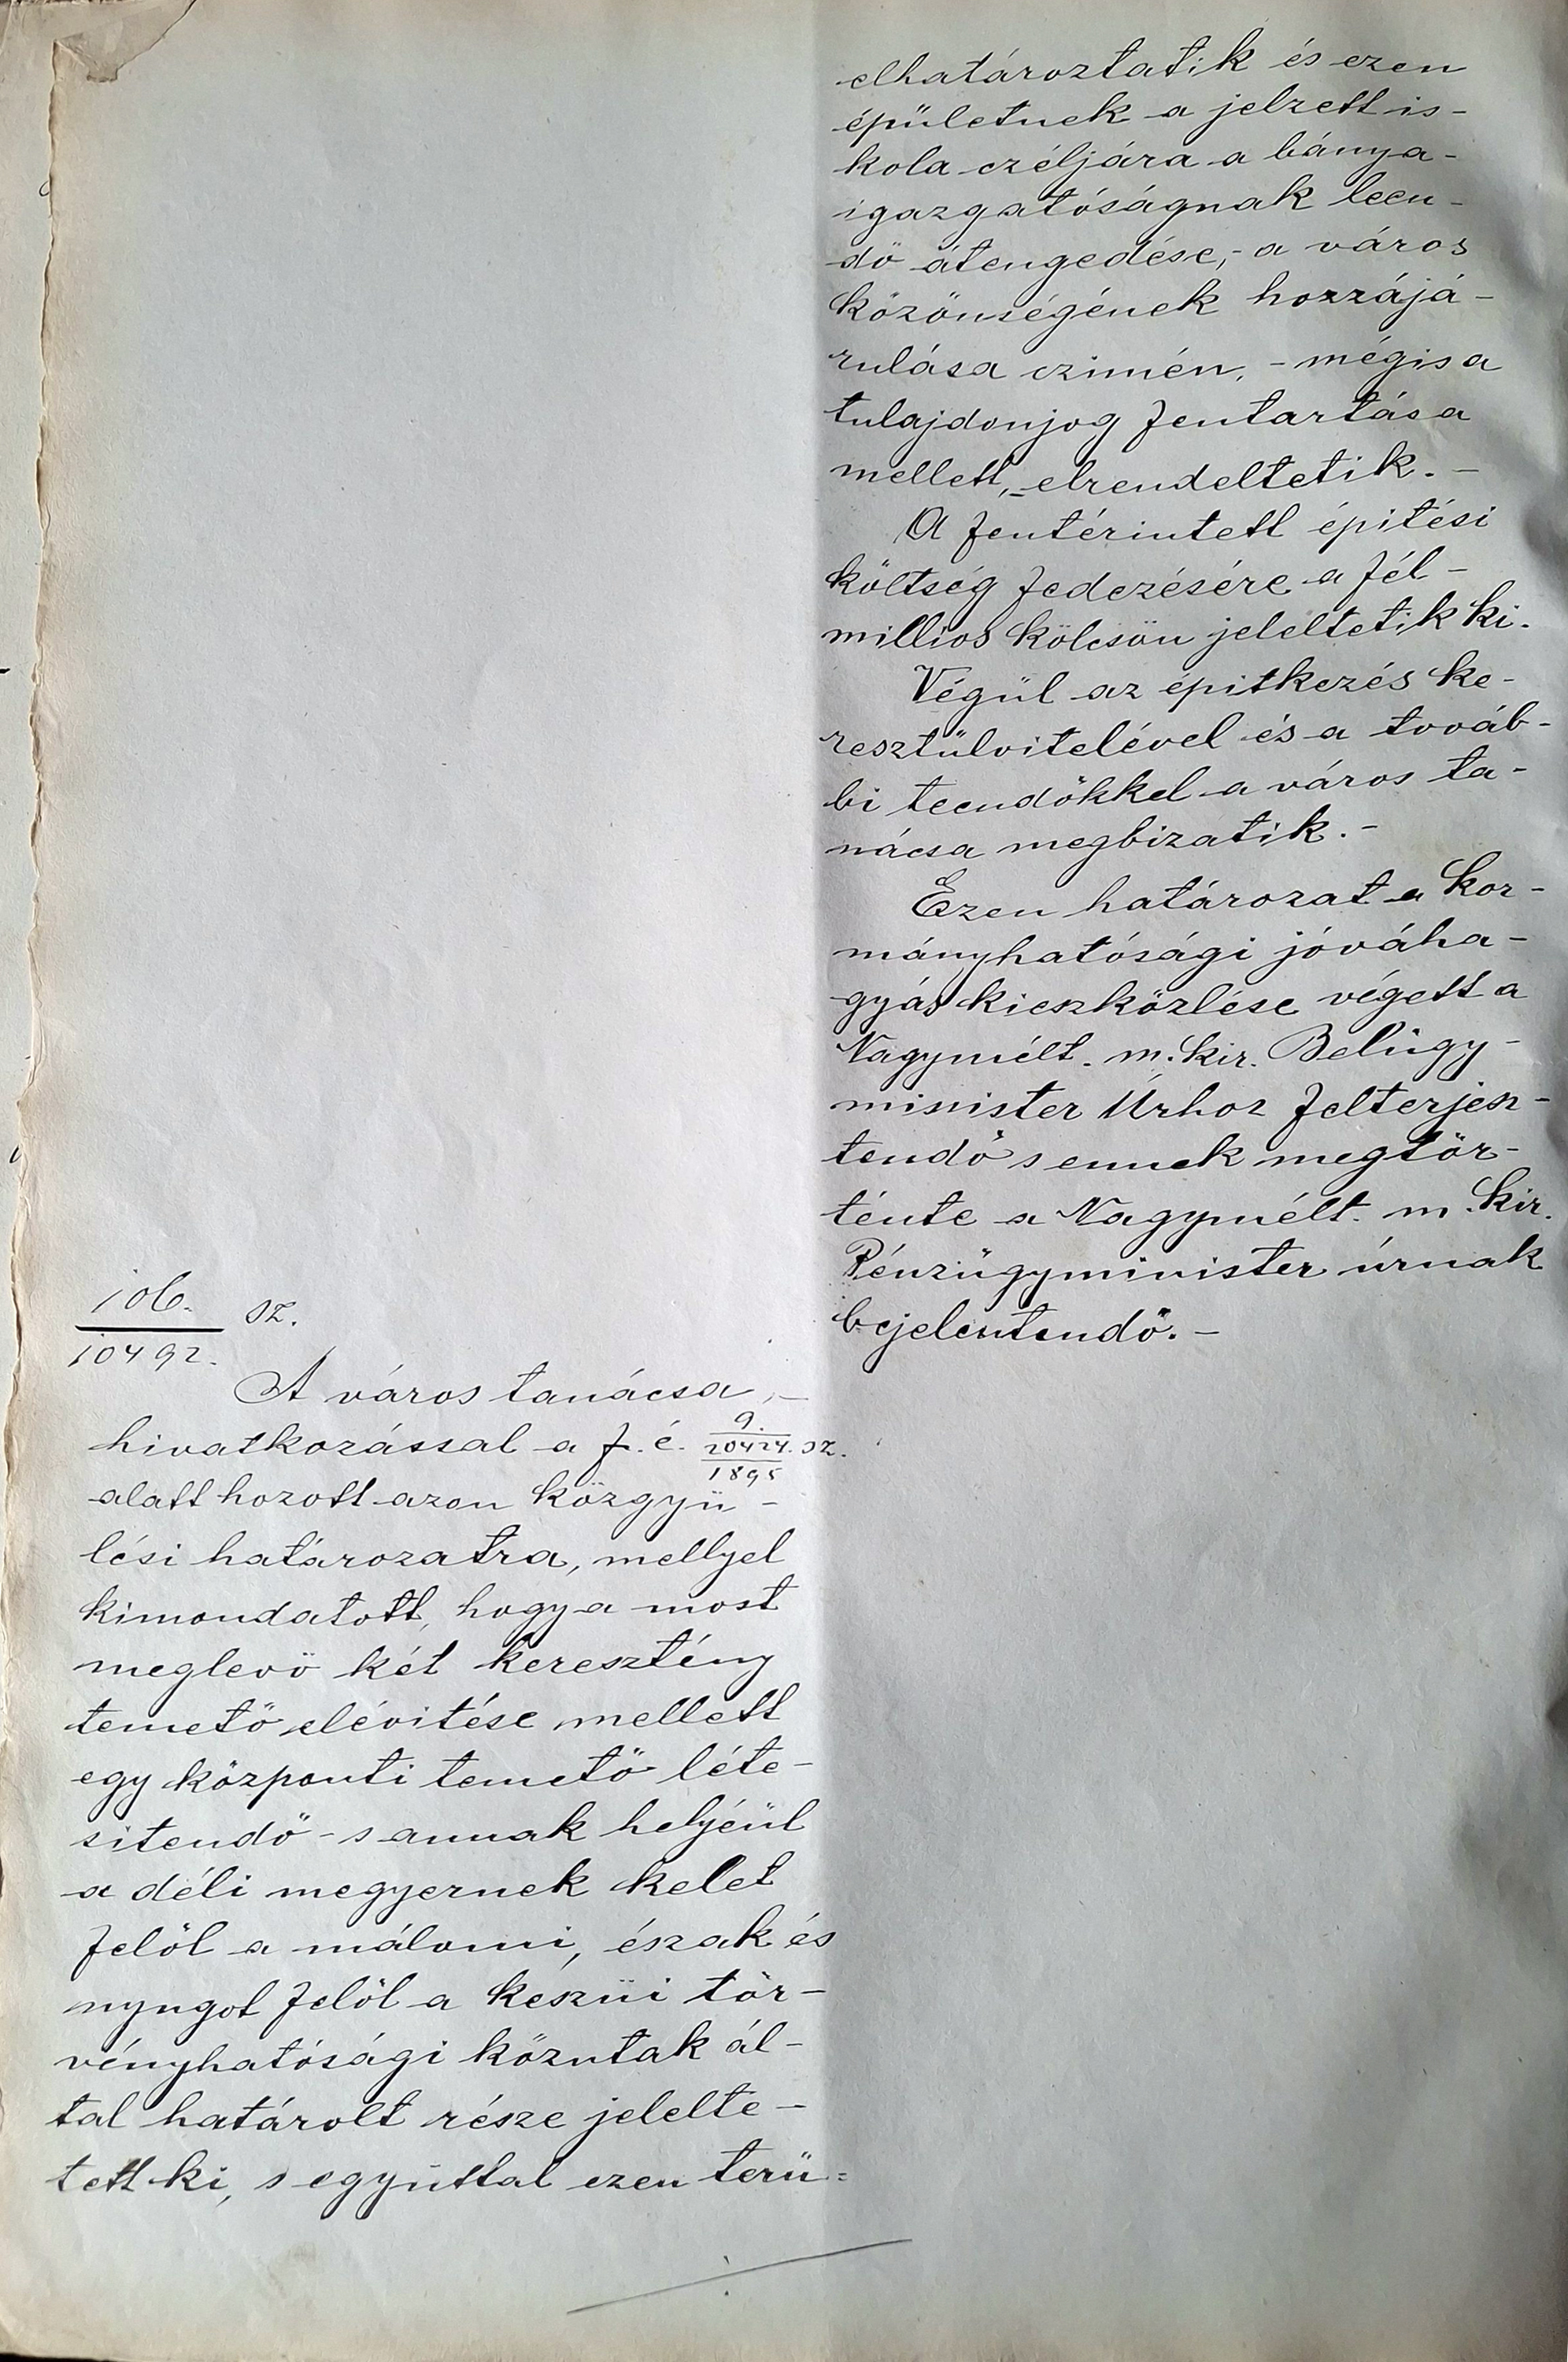 elhatároztatik és ezen
épületnek a jelzett is-
kola czéljára a bánya-
igazgatóságnak leen-
dő átengedése,- a város
közönségének hozzájá-
rulása czimén, - mégis a
tulajdonjog fentartása
mellett, - elrendeltetik. -
A fentérintett épitési
költség fedezésére a fél-
milliós kölcsön jeleltetik ki.
Végül az épitkezés ke-
resztülvitelével és a továb-
bi teendőkkel a város ta-
nácsa megbizatik. -
Ezen határozat a kor-
mányhatósági jóváha-
gyás kieszközlése végett a
Nagymélt. m. kir. Belügy-
minister Úrhoz felterjesz-
tendő s ennek megtör-
ténte a Nagymélt. m. kir.
Pénzügyminister úrnak
bejelentendő. -
106. sz.
10492.
A város tanácsa, -
hivatkozással a f. é. 9. / 20424. / 1895 sz.
alatt hozott azon közgyü-
lési határozatra, mellyel
kimondatott, hogy a most
meglevő két keresztény
temető elévitése mellett
egy központi temető léte-
sitendő - s annak helyéül
a déli megyernek kelet
felöl a málomi, észak és
nyugot felöl a keszüi tör-
vényhatósági közutak ál-
tal határolt része jelelte-
tett ki, s egyúttal ezen terü=